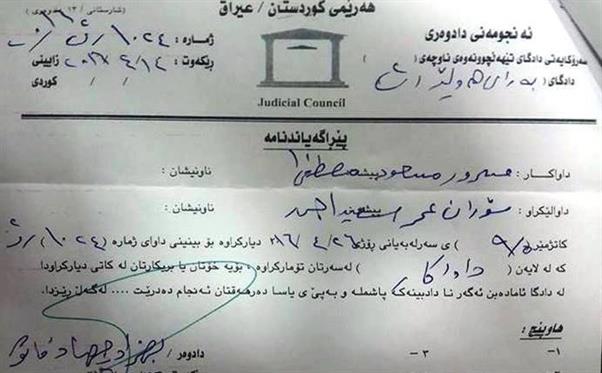 هەرێمی کوردستان / عیراق
ئەنجومەنی دادوەری
سەرۆکایەتی دادگای تێهەڵچوونەوەی ناوچەی
دادگای (
ژمارە : ١٠٢٤
ڕێکەوت : ٢٠١٦/٤/١٤ زایینی
/ / کوردی
Judicial Council
پێراگەیاندنامە
داواکار : مسرور مسعود مصطفى ناونیشان :
داوالێکراو : سۆران عمر سعید احمد ناونیشان :
کاتژمێر (٩/٥) ی سەرلەبەیانی رۆژی ٢٠١٦/٤/٢٦ دیارکراوە بۆ بینینی داوای ژمارە (١٠٢٤/
کە لە لایەن ( داواکار ) لەسەرتان تۆمارکراوە ، بۆیە خۆتان یا بریکارتان لە کاتی دیارکراودا
لە دادگا ئامادەبن ئەگەر نا دادبینەکە پاشملە و بەپێی یاسا دەرهەقتان ئەنجام دەدرێت .... لەگەڵ رێزدا.
هاوپێچ :
١- ٣ - دادوەر /